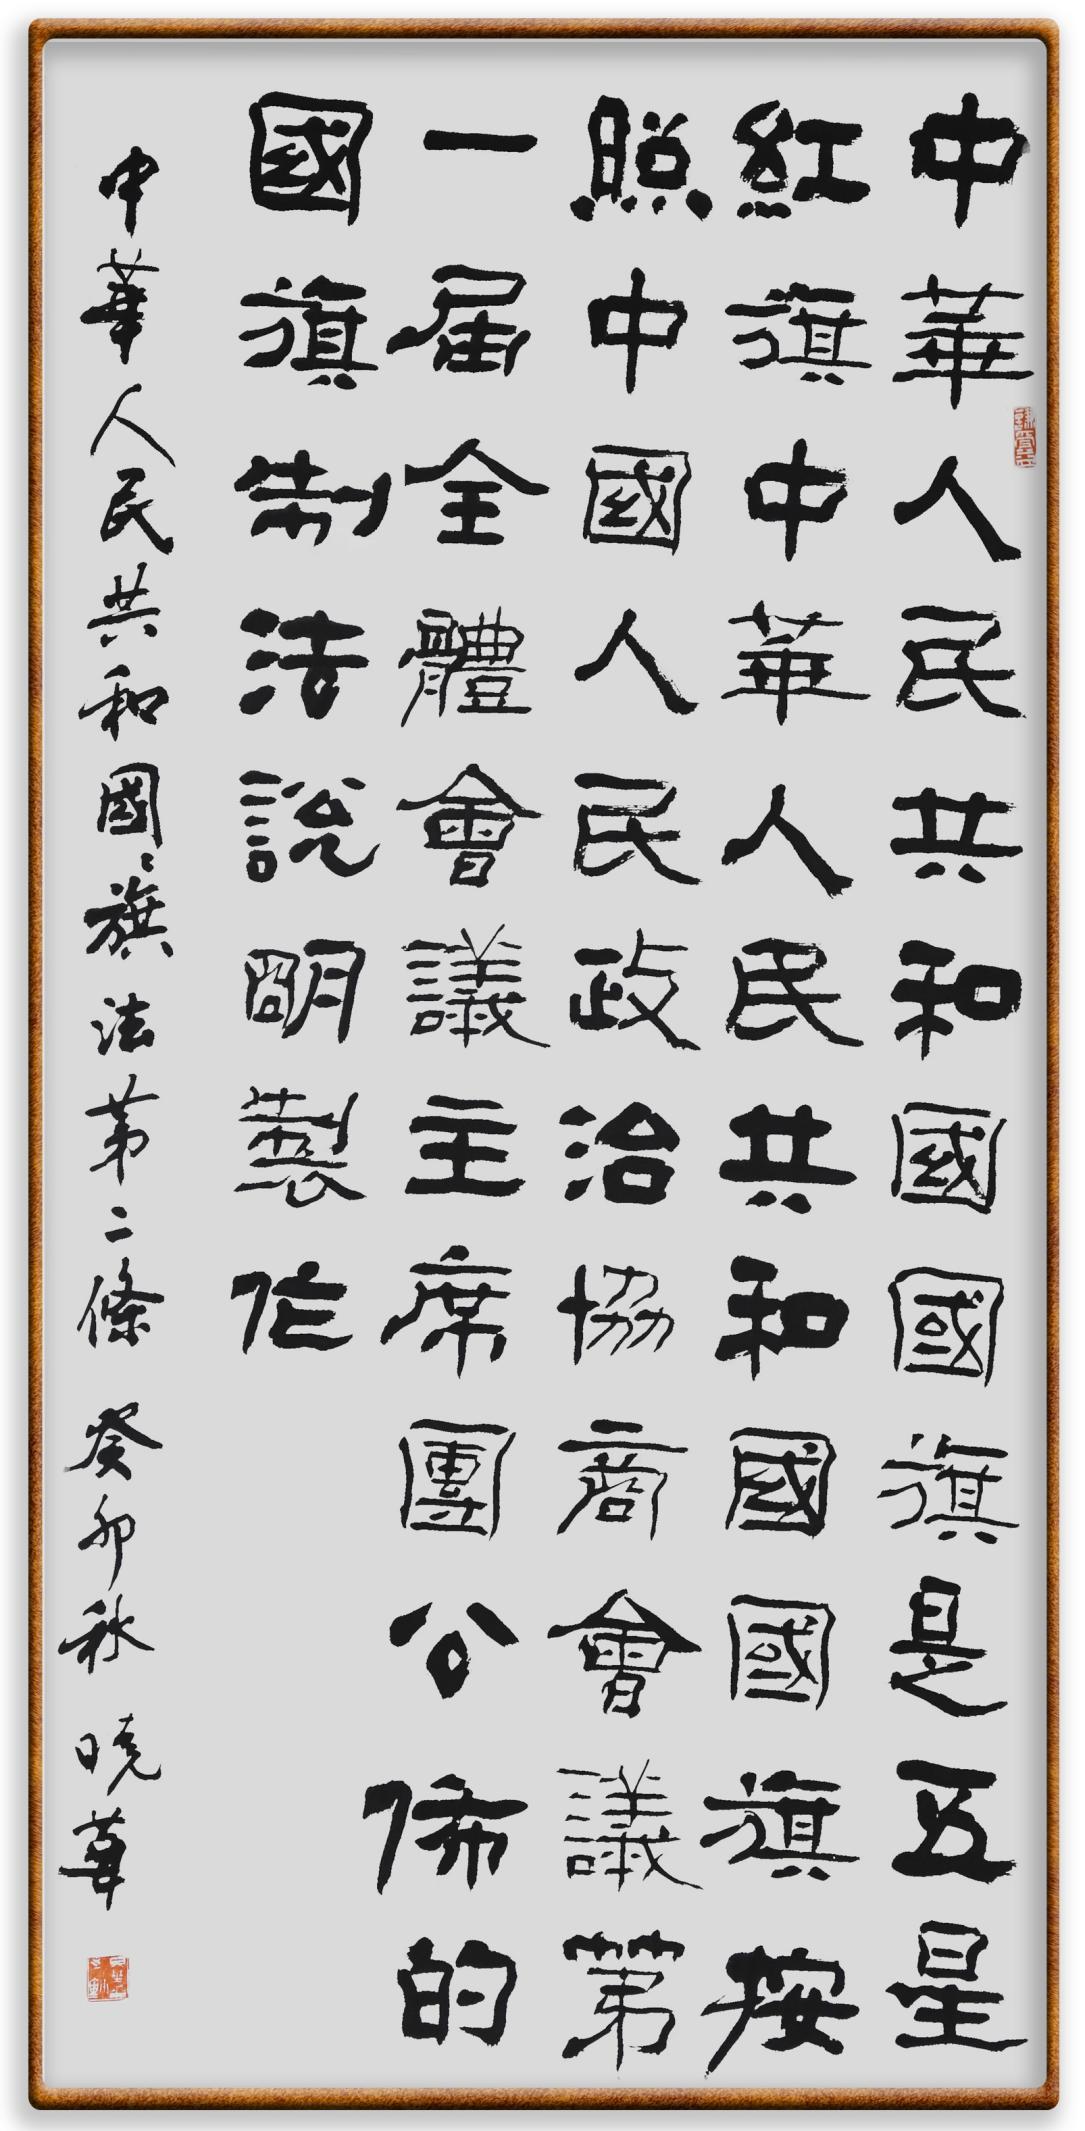 中華人民共和國國旗是五星
紅旗中華人民共和國國旗按
照中國人民政治協商會議第
一届全體會議主席團公佈的
國旗制法說明製作
中華人民共和國〻旗法第二條 癸卯秋 曉華